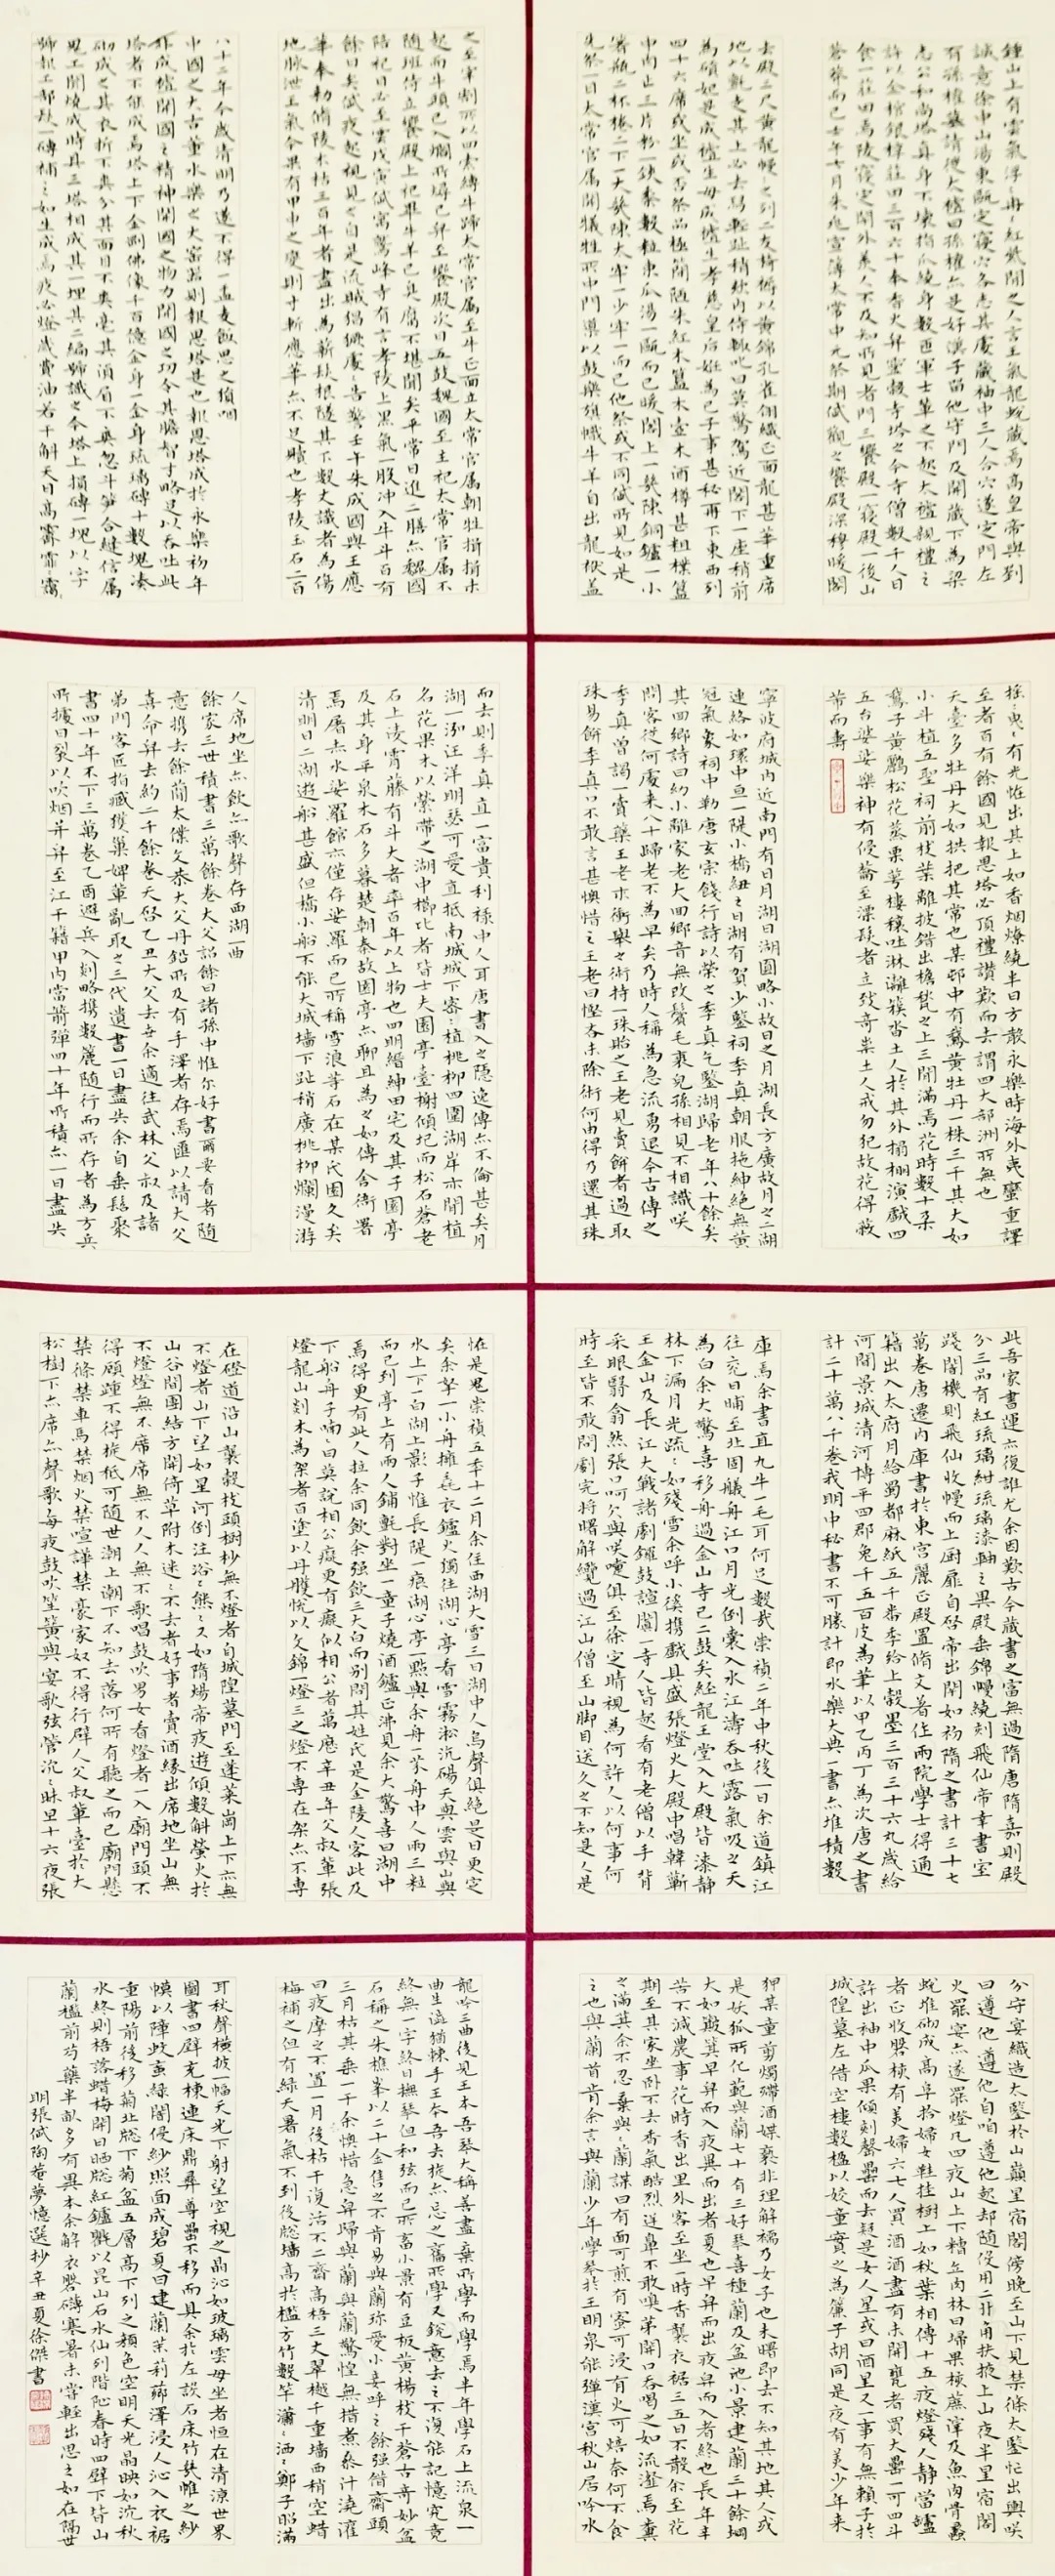 鍾山上有雲氣浮〻冉〻紅紫間之人言王氣龍蛻藏焉高皇帝與劉
誠意徐中山湯東甌定寢穴各志其處藏袖中三人合穴遂定門左
有孫權墓請徙太祖曰孫權亦是好漢子留他守門及開藏下為梁
志公和尚塔真身不壞指爪繞身數匝軍士輦之不起太祖親禮之
許以金棺銀槨莊田三百六十奉香火舁靈穀寺塔之今寺僧數千人日
食一莊田焉陵寢定閉外羨人不及知所見者門三饗殿一寢殿一後山
蒼莽而已壬午七月朱兆宣簿太常中元祭期岱觀之饗殿深穆暖閣
去殿三尺黃龍幔幔之列二交椅褥以黃錦孔雀翎織正面龍甚華重席
地以氈走其上必去舄輕趾稍咳內侍輒叱曰莫驚駕近閣下一座稍前
為碽妃是成祖生母成祖生孝慈皇后妊為己子事甚秘再下東西列
四十六席或坐或否祭品極簡陋朱紅木簋木壺木酒樽甚粗樸簋
中肉止三片粉一鋏黍數粒東瓜湯一甌而已暖閣上一几陳銅鑪一小
箸瓶二杯棬二下一大几陳太牢一少牢一而已他祭或不同岱所見如是
先祭一日太常官屬開犧牲所中門導以鼓樂旗幟牛羊自出龍袱蓋
之至宰割所以四索縛牛蹄太常官屬至牛正面立太常官屬朝牲揖揖未
起而牛頭已入燖所燖已舁至饗殿次日五鼓魏國至主祀太常官屬不
隨班侍立饗殿上祀畢牛羊已臭腐不堪聞矣平常日進二膳亦魏國
陪祀日必至雲戊寅岱寓鷲峰寺有言孝陵上黑氣一股沖入牛斗百有
餘日矣岱夜起視見之自是流賊猖獗處〻告警壬午朱成國與王應
華奉勅脩陵木枯三百年者盡出為薪發根隧其下數丈識者為傷
地脈泄王氣今果有甲申之變則寸斬應華亦不足贖也孝陵玉石二百
八十二年今歲清明乃遂不得一盂麦飯思之猿咽
中國之大古董永樂之大窑器則報恩塔是也報恩塔成於永樂初年
非成祖開國之精神開國之物力開國之功令其膽智才略足以吞吐此
塔者不能成焉塔上下金剛佛像千百億金身一金身琉璃磚十數塊湊
砌成之其衣折不爽分其面目不爽毫其鬚眉不爽忽斗笋合縫信屬
鬼工聞燒成時具三塔相成其一埋其二編號識之今塔上損磚一塊以字
號報工部發一磚補之如生成焉夜必燈歲費油若干斛天日高霽霏〻靄〻
搖〻曳〻有光怪出其上如香烟繚繞半日方散永樂時海外夷蠻重譯
至者百有餘國見報恩塔必頂禮讚歎而去謂四大部洲所無也
天臺多牡丹大如拱把其常也某邨中有鵞黃牡丹一株三干其大如
小斗植五聖祠前枝葉離披錯出檐甃之上三間滿焉花時數十朵
鵞子黃鸝松花蒸栗萼樓穰吐淋漓簇沓土人於其外搨棚演戲四
五台婆娑樂神有侵蕾至漂髮者立致奇祟土人戒勿犯故花得蔽
芾而壽
寧波府城內近南門有日月湖日湖圓略小故日之月湖長方廣故月之二湖
連絡如環中亘一隄小橋紐之日湖有賀少鑒祠季真朝服拖紳絕無黃
冠氣象祠中勒唐玄宗餞行詩以榮之季真乞鑒湖歸老年八十餘矣
其回鄉詩曰幼小離家老大回鄉音無改鬢毛衰兒孫相見不相識咲
問客從何處来八十歸老不為早矣乃時人稱為急流勇退今古傳之
季真曾謁一賣藥王老求衝舉之術持一珠貽之王老見賣餅者過取
珠易餅季真口不敢言甚懊惜之王老曰慳吝未除術何由得乃還其珠
而去則季真直一富貴利祿中人耳唐書入之隱逸傳亦不倫甚矣月
湖一泓汪洋明瑟可愛直抵南城城下密〻植桃柳四圍湖岸亦間植
名花果木以縈帶之湖中櫛比者皆士夫園亭臺榭傾圮而松石蒼老
石上凌霄藤有斗大者率百年以上物也四明縉紳田宅及其子園亭
及其身平泉木石多暮楚朝秦故園亭亦聊且為之如傳舍衙署
焉屠赤水娑羅館亦僅存娑羅而已所稱雪浪等石在某氏園久矣
清明日二湖遊船甚盛但橋小船不能大城墻下趾稍廣桃柳爛漫游
人席地坐亦飲亦歌聲存西湖一曲
餘家三世積書三萬餘卷大父詔餘曰諸孫中惟尔好書爾要看者隨
意攜去餘簡太僕文恭大父丹鉛所及有手澤者存焉匯以請大父
喜命舁去約二千餘卷天啓乙丑大父去世余適往武林父叔及諸
弟門客匠指臧獲巢婢輩亂取之三代遺書一日盡失余自垂髫聚
書四十年不下三萬卷乙酉避兵入剡略携數簏隨行而所存者為方兵
所據日裂以吹烟并舁至江干籍甲內當箭彈四十年所積亦一日盡失
此吾家書運亦復誰尤余因歎古今藏書之富無過隋唐隋嘉則殿
分三品有紅琉璃紺琉璃漆軸之異殿垂錦幔繞刻飛仙帝幸書室
踐闇機則飛仙收幔而上厨扉自啓帝出閉如初隋之書計三十七
萬卷唐遷內庫書於東宮麗正殿置脩文著作兩院學士得通
籍出入太府月給蜀都麻紙五千番季給上穀墨三百三十六丸歲給
河間景城清河博平四郡兔千五百皮為筆以甲乙丙丁為次唐之書
計二十萬八千卷我明中秘書不可勝計即永樂大典一書亦堆積數
庫焉余書直九牛一毛耳何足數哉崇禎二年中秋後一日余道鎮江
往兗日晡至北固艤舟江口月光倒囊入水江濤吞吐露氣吸之天
為白余大驚喜移舟過金山寺已二鼓矣經龍王堂入大殿皆漆靜
林下漏月光疏〻如殘雪余呼小傒攜戲具盛張燈火大殿中唱韓蘄
王金山及長江大戰諸劇鑼鼓諠闐一寺人皆起看有老僧以手背
采眼翳翕然張口呵欠與咲嚏俱至徐定睛視為何許人以何事何
時至皆不敢問劇完將曙解纜過江山僧至山脚目送久之不知是人是
怪是鬼崇禎五年十二月余住西湖大雪三日湖中人鳥聲俱絕是日更定
矣余拏一小舟擁毳衣鑪火獨往湖心亭看雪霧淞沆碭天與雲與山與
水上下一白湖上影子惟長隄一痕湖心亭一點與余舟一芥舟中人兩三粒
而已到亭上有兩人鋪氈對坐一童子燒酒鑪正沸見余大驚喜曰湖中
焉得更有此人拉余同飲余强飲三大白而別問其姓氏是金陵人客此及
下船舟子喃〻曰莫說相公癡更有癡似相公者萬曆辛丑年父叔輩張
燈龍山剡木為架者百塗以丹雘帨以文錦一燈三之燈不專在架亦不專
在磴道沿山襲穀枝頭樹杪無不燈者自城隍墓門至蓬萊崗上下亦無
不燈者山下望如星河倒注浴〻熊〻又如隋煬帝夜遊傾數斛螢火於
山谷間團結方開倚草附木迷〻不去者好事者賣酒緣出席地坐山無
不燈燈無不席席無不人人無不歌唱鼓吹男女看燈者一入廟門頭不
得顧踵不得旋秪可隨世潮上潮下不知去落何所有聽之而已廟門懸
禁條禁車馬禁烟火禁喧譁禁豪家奴不得行辟人父叔輩臺於大
松樹下亦席亦聲歌每夜鼓吹笙簧與宴歌弦管沉〻昧旦十六夜張
分守宴織造太鑒於山巔星宿閣傍晚至山下見禁條太鑒忙出輿咲
曰遵他遵他自咱遵他起却隨役用二丱角扶掖上山夜半星宿閣
火罷宴亦遂罷燈凡四夜山上下糟丘肉林日掃果核蔗滓及魚肉骨蠡
蛻堆砌成高阜拾婦女鞋挂樹上如秋葉相傳十五夜燈殘人靜當壚
者正收盤核有美婦六七人買酒酒盡有未開甕者買大罍一可四斗
許出袖中瓜果傾刻罄罍而去疑是女人星或曰酒星又一事有無賴子於
城隍墓左借空樓數楹以姣童實之為簾子胡同是夜有美少年来
狎某童剪燭殢酒媟褻非理解襦乃女子也未曙即去不知其地其人或
是妖狐所化範與蘭七十有三好琴喜種蘭及盆池小景建蘭三十餘缸
大如簸箕早舁而入夜舁而出者夏也早舁而出夜舁而入者終也長年辛
苦不減農事花時香出里外客至坐一時香襲衣裾三五日不散余至花
期至其家坐卧不去香氣酷烈逆鼻不敢嗅第開口吞噏之如流瀣焉糞
之滿箕余不忍棄與〻蘭謀曰有面可煎有蜜可浸有火可焙奈何不食
之也與蘭首肯余言與蘭少年學琴於王明泉能彈漢宮秋山居吟水
龍吟三曲後見王本吾琴大稱善盡棄所學而學焉半年學石上流泉一
曲生澀猶棘手王本吾去旋亦忘之舊所學又銳意去之不復能記憶究竟
終無一字終日撫琴但和弦而已所畜小景有豆板黃楊枝干蒼古奇妙盆
石稱之朱樵峯以二十金售之不肯易與蘭珍愛小妾呼之餘强借齋頭
三月枯其垂一干余懊惜急舁歸與蘭與蘭驚惶無措煮參汁澆灌
日夜摩之不置一月後枯干復活不二齋高梧三丈翠樾千重墻西稍空蜡
梅補之但有綠天暑氣不到後窗墻高於檻方竹數竿瀟〻洒〻鄭子昭滿
耳秋聲橫披一幅天光下射望空視之晶沁如玻璃雲母坐者恒在清涼世界
圖書四壁充棟連床鼎彝尊罍不移而具余於左設石床竹几帷之紗
幙以障蚊䖟綠闇侵紗照面成碧夏日建蘭茉莉薌澤浸人沁入衣裾
重陽前後移菊北窗下菊盆五層高下列之顏色空明天光晶映如沉秋
水終則梧落蜡梅開日晒窗紅鑪毾㲪以昆山石水仙列階阯春時四壁下皆山
蘭檻前芍藥半畝多有異本余解衣盤礴寒暑未嘗輕出思之如在隔世
明張岱陶菴夢憶選抄辛丑夏徐傑書